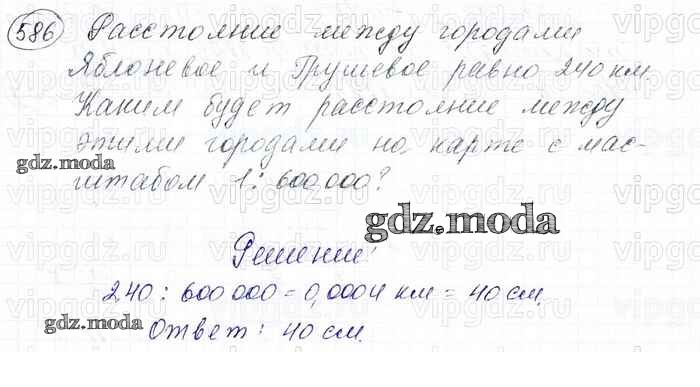 586 Расстояние между городами
Яблоневое и Грушевое равно 240 км.
Каким будет расстояние между
этими городами на карте с мас-
gdz.moda
штабом 1 : 600 000?
gdz.moda
Решение:
240 : 600 000 = 0,0004 км = 40 см.
gdz.moda
Ответ: 40 см.